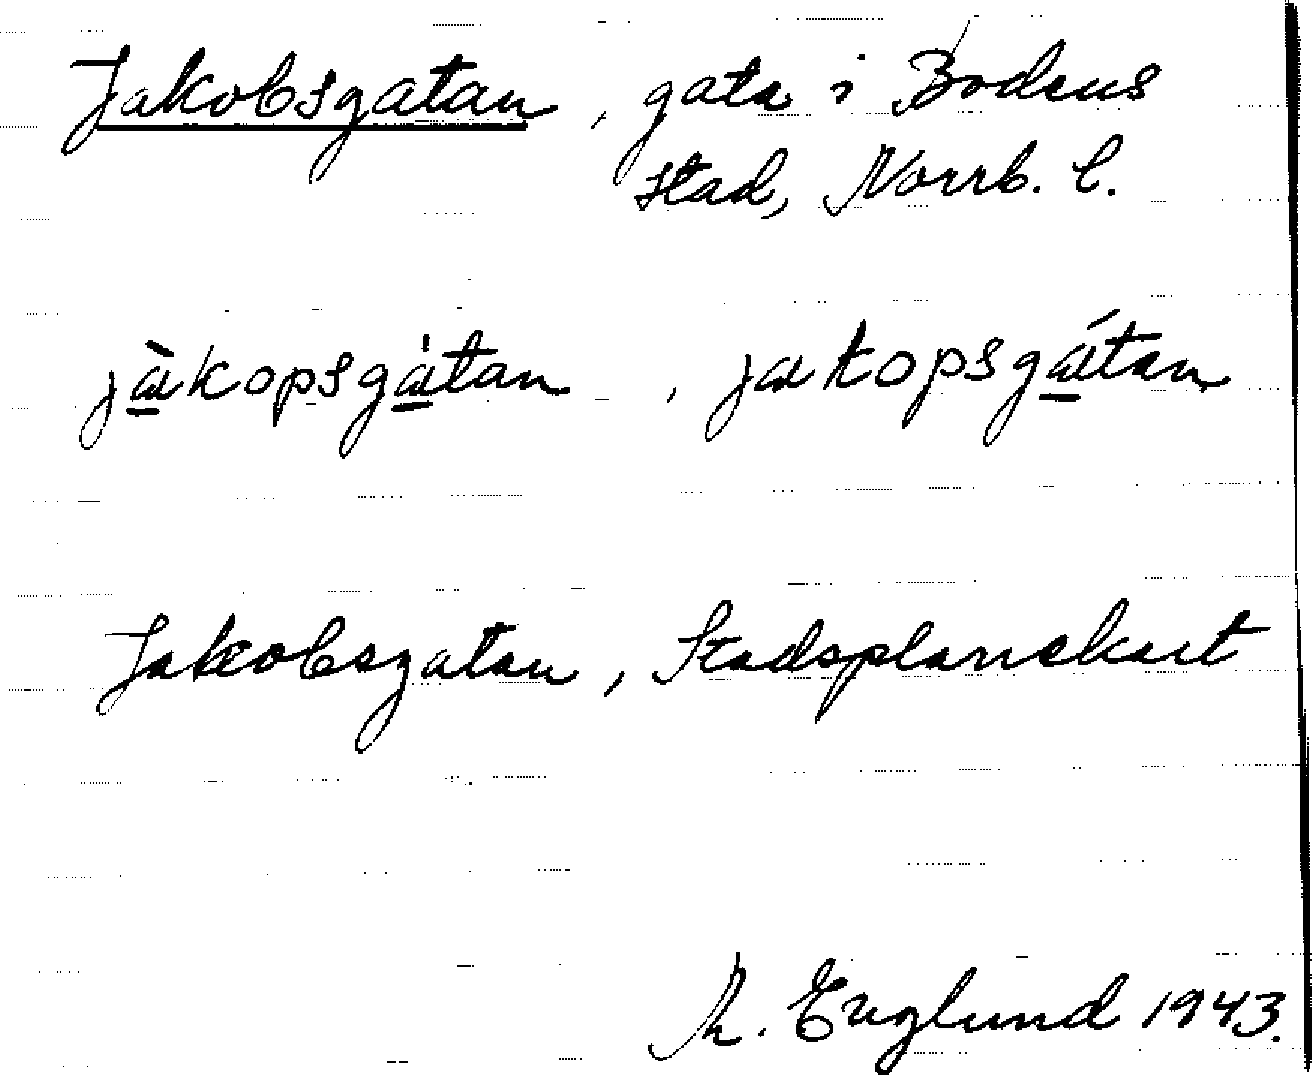 Jakobsgatan, gata i Bodens
stad, Norrb. l.
jàkopsgátan, jakopsgátan
Jakobsgatan, Stadsplanekart
Englund 1943.